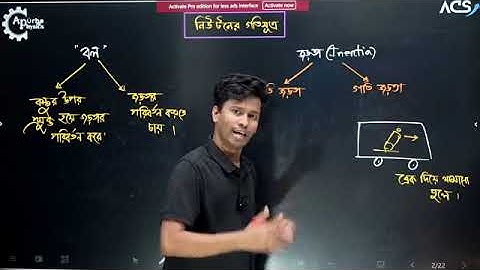 Apurba Physics
Activate Pro edition for less ads interface Activate now
ACS
নিউটনের গতিসূত্র
"বল"
জড়তা (Inertia)
বস্তুর উপর
প্রযুক্ত হয়ে জড়তার
পরিবর্তন করে
জড়তার
পরিবর্তন করতে
চায়।
তি জড়তা
গতি জড়তা
ব্রেক দিয়ে থামানো
হলে।
2/22